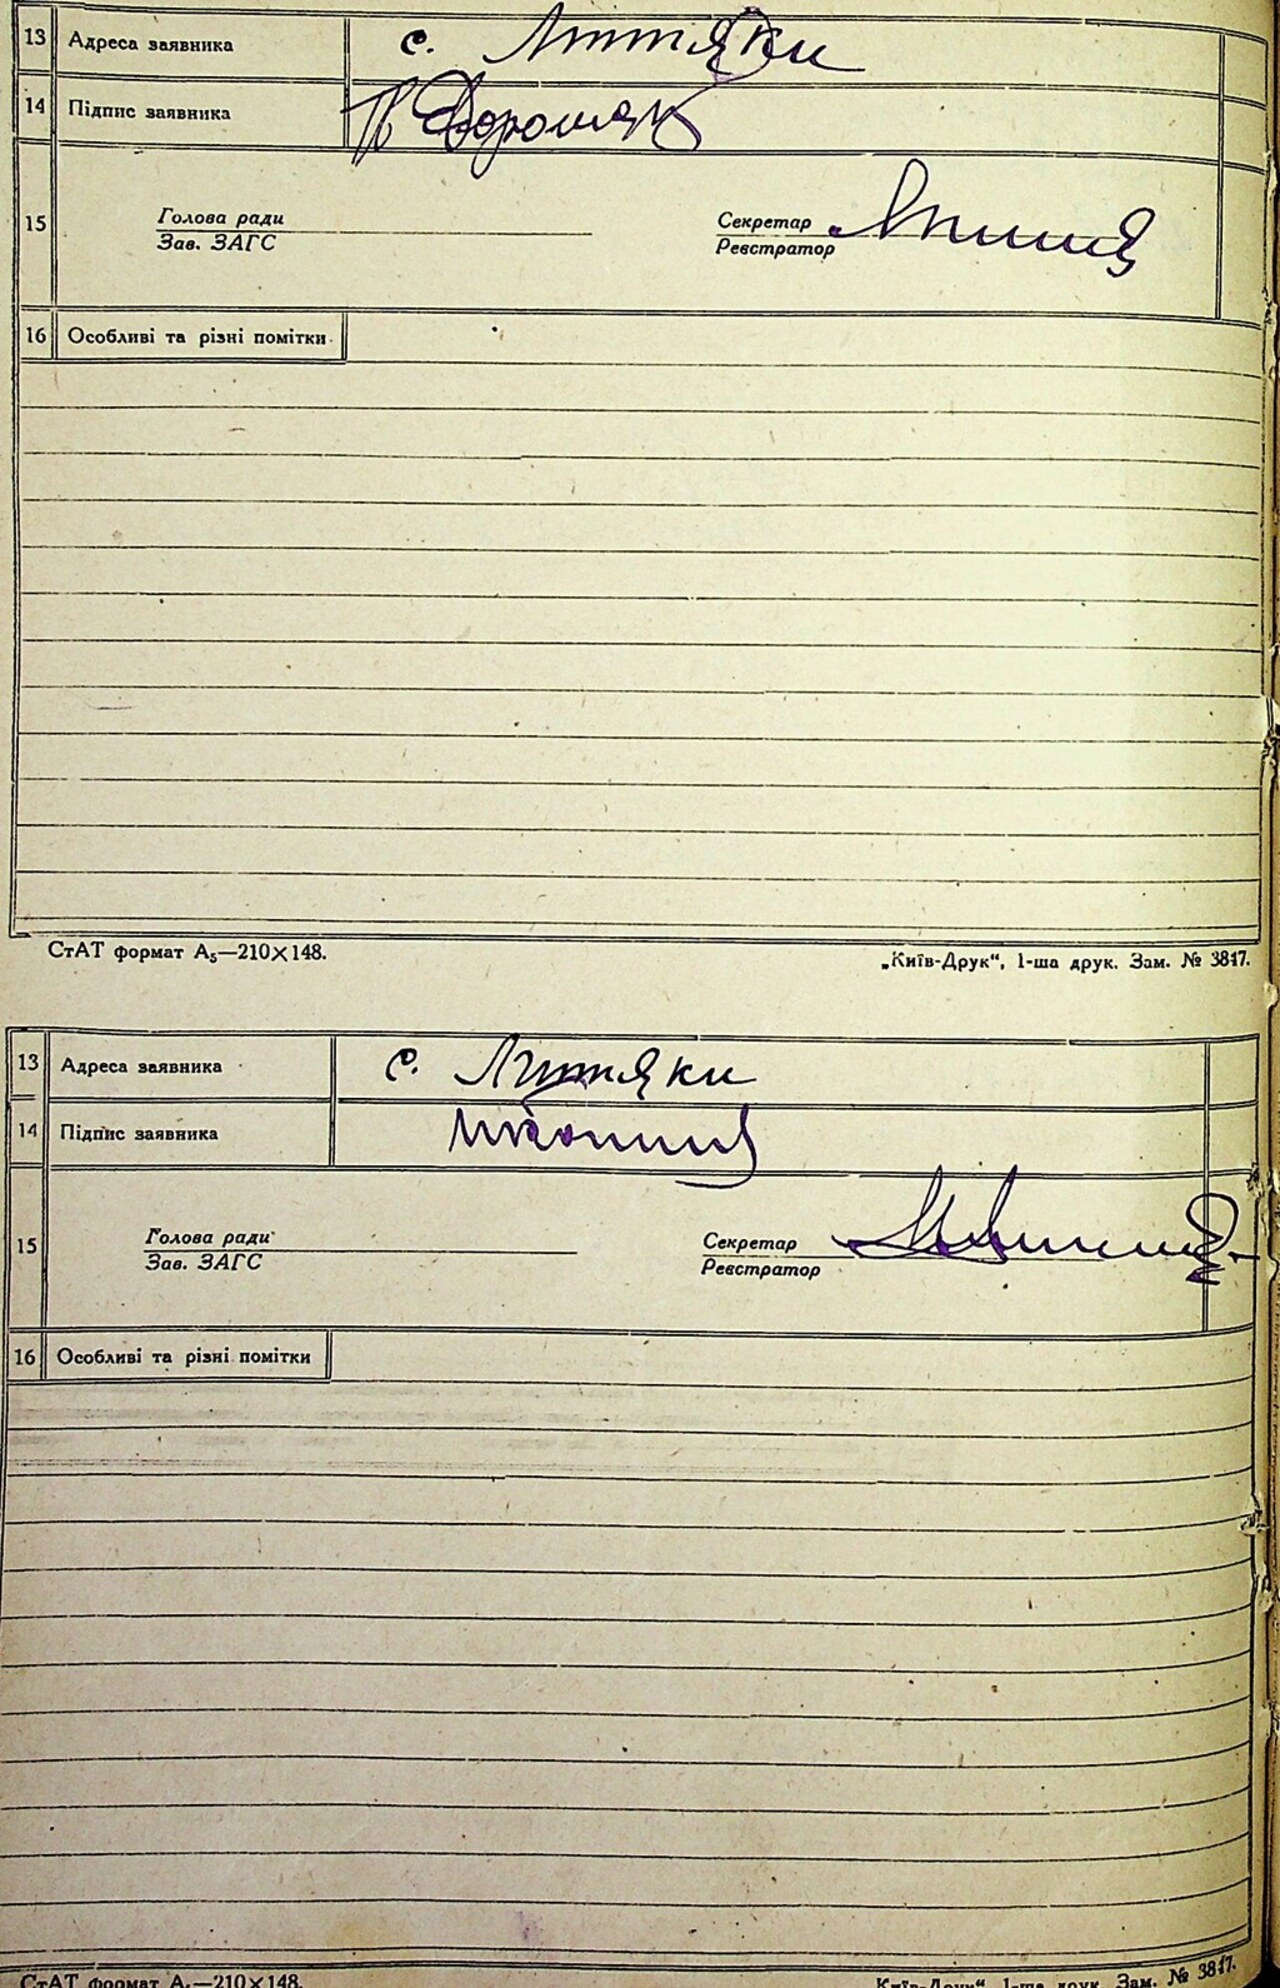 13 Адреса заявника с. Литтяки
14 Підпис заявника П Дорошук
15 Голова ради Секретар
Зав. ЗАГС Реєстратор
16 Особливі та різні помітки
СтАТ формат А₅—210×148. „Київ-Друк“, 1-ша друк. Зам. № 3817.
13 Адреса заявника с. Литтяки
14 Підпис заявника
15 Голова ради Секретар
Зав. ЗАГС Реєстратор
16 Особливі та різні помітки
СтАТ формат А₅—210×148. „Київ-Друк“, 1-ша друк. Зам. № 3817.